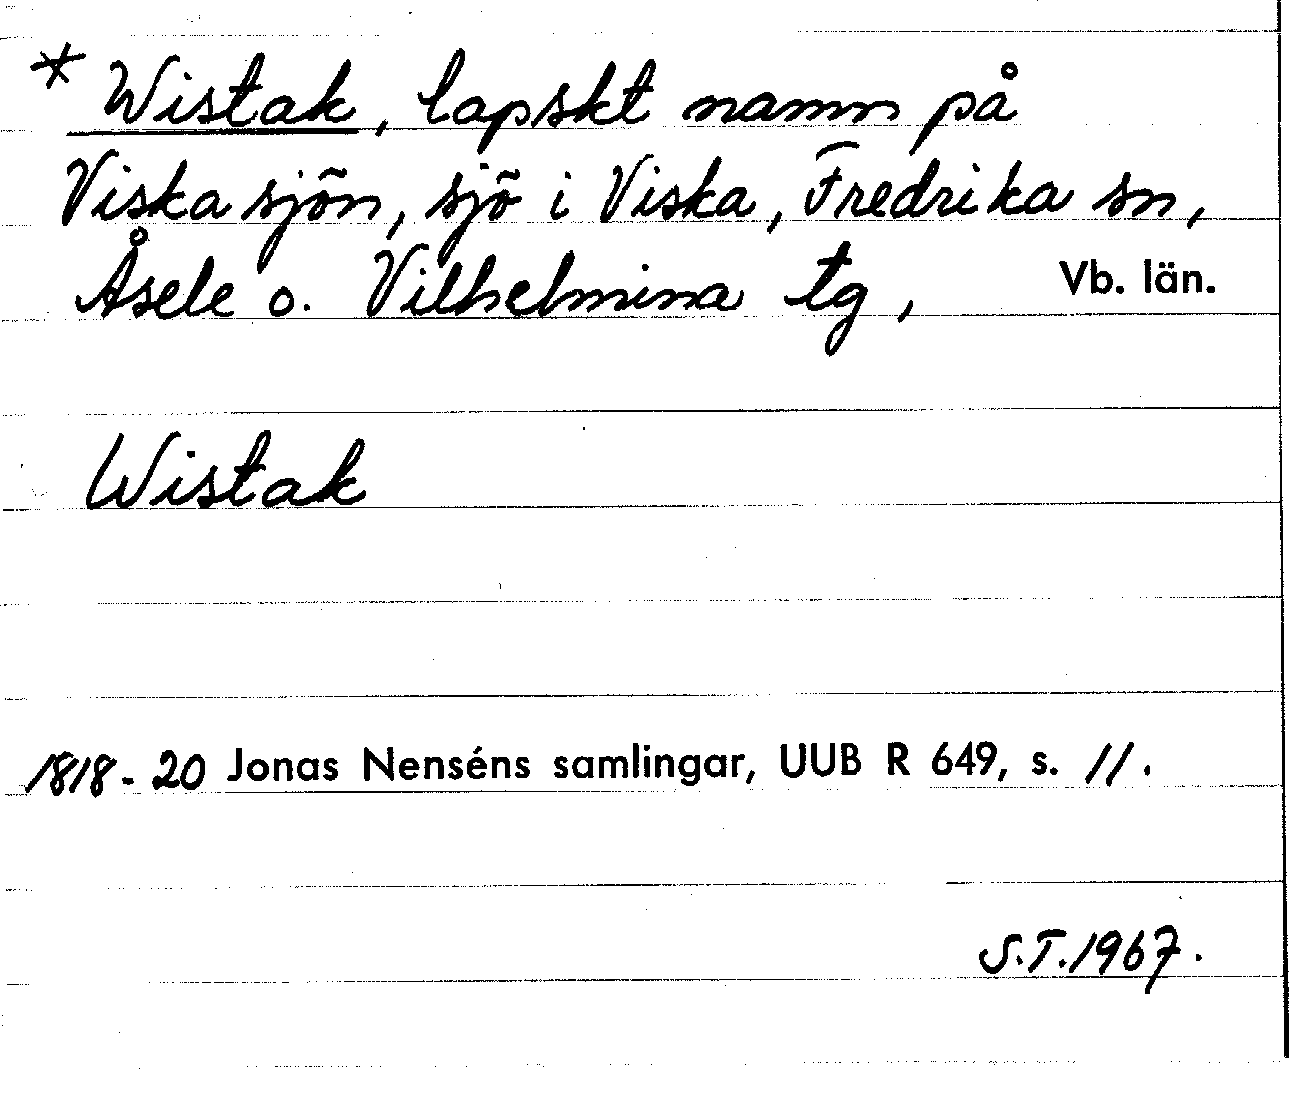 * Wistak, lapskt namn på
Viskasjön, sjö i Viska, Fredrika sn,
Åsele o. Vilhelmina tg, Vb. län.
Wistak
1818-20 Jonas Nenséns samlingar, UUB R 649, s. 11.
S.T.1967.